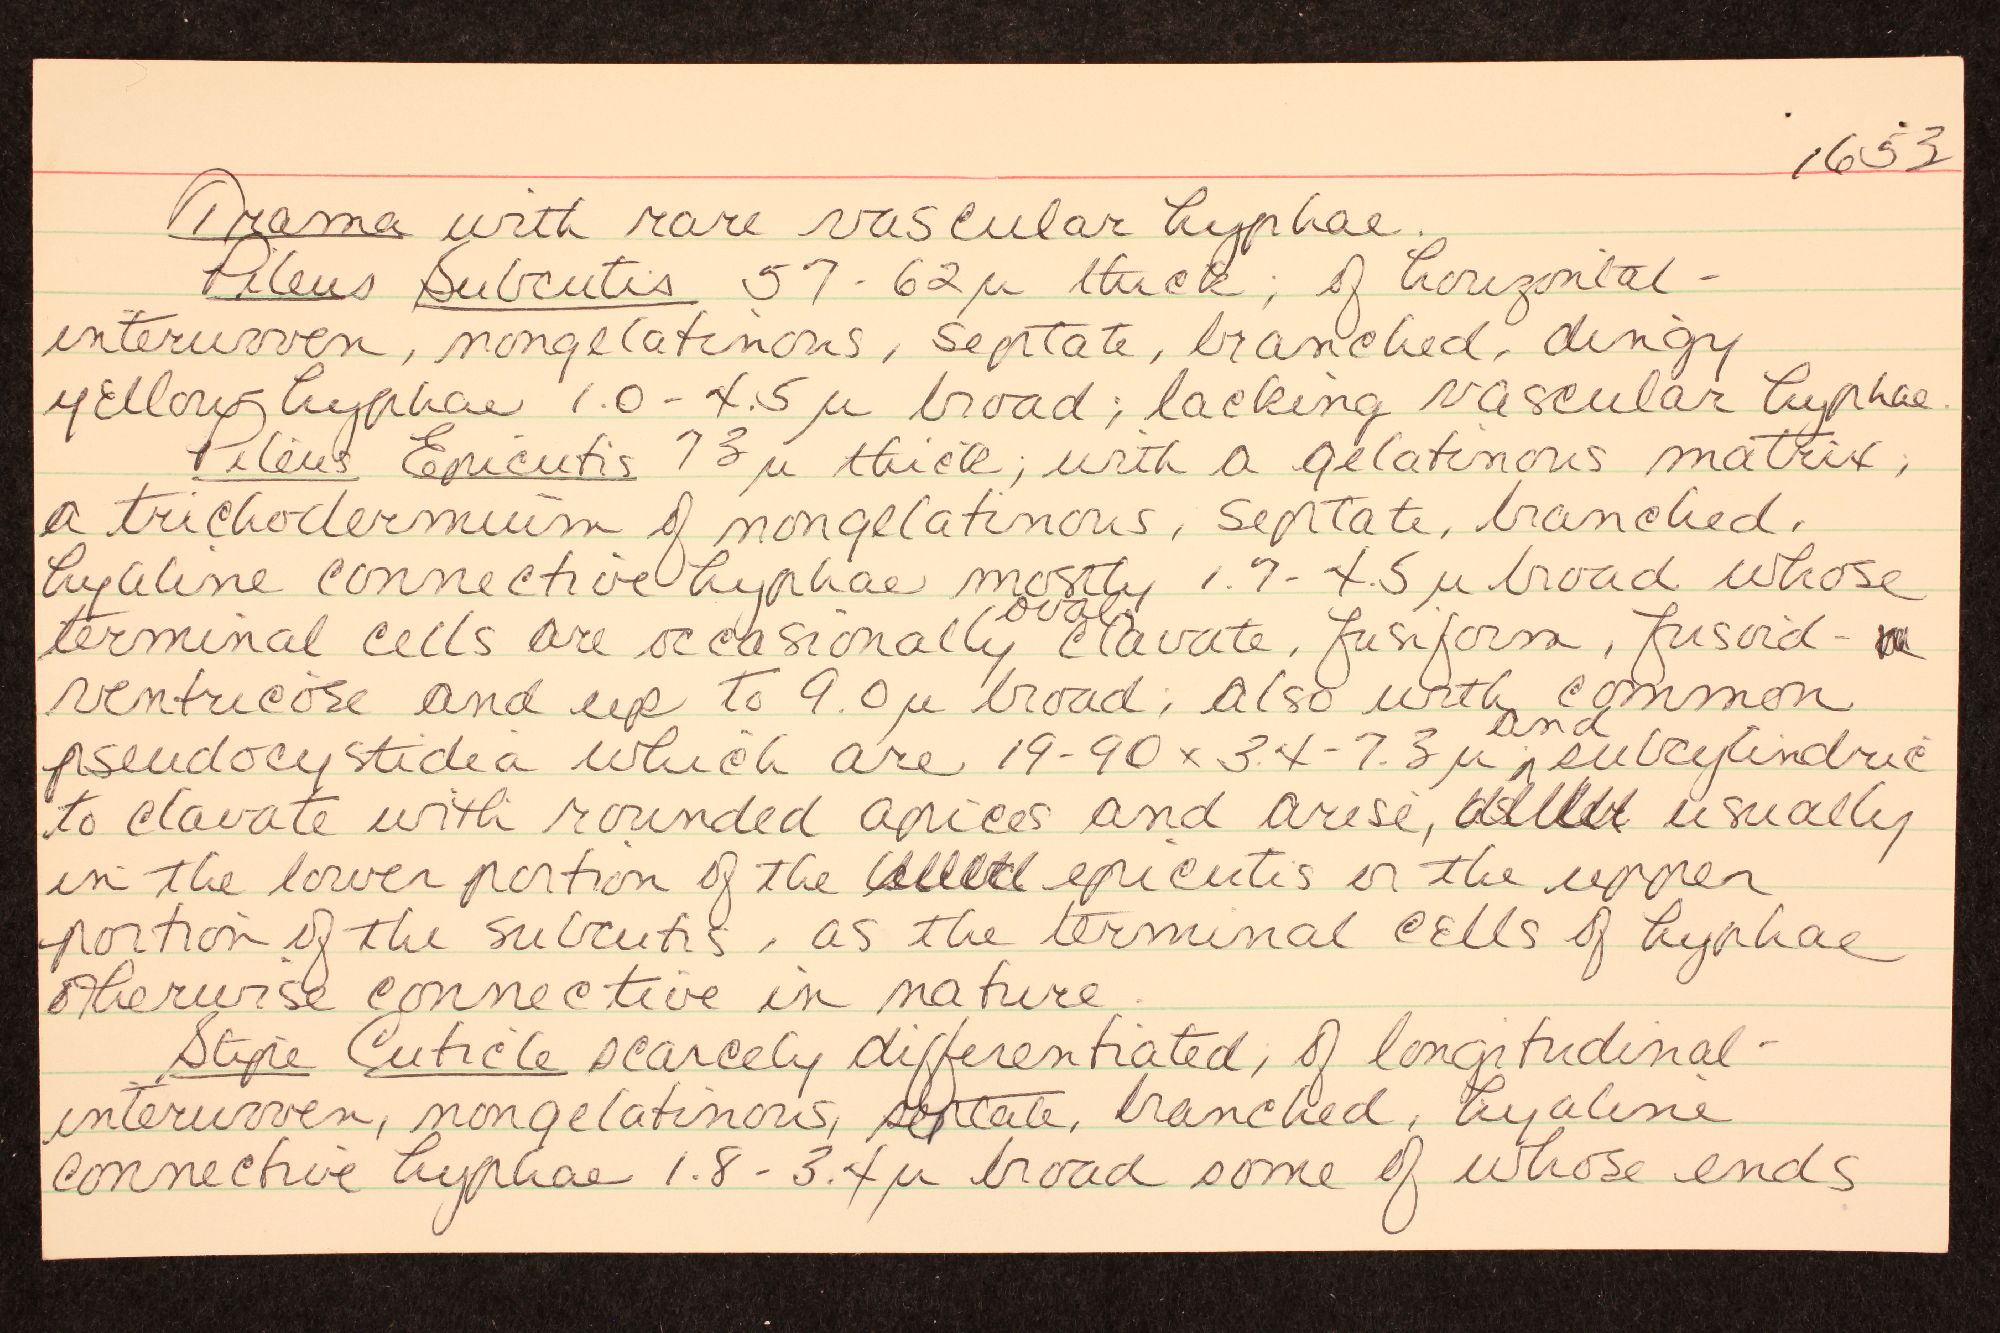 1653
Trama with rare vascular hyphae.
Pileus Subcutis 57-62μ thick; of horizontal-
interwoven, nongelatinous, septate, branched, dingy
yellow hyphae 1.0-4.5μ broad; lacking vascular hyphae.
Pileus Epicutis 73μ thick; with a gelatinous matrix;
a trichodermium of nongelatinous, septate, branched,
hyaline connective hyphae mostly 1.7-4.5μ broad whose
terminal cells are occasionally oval, clavate, fusiform, fusoid-
ventricose and up to 9.0μ broad; also with common
pseudocystidia which are 19-90 x 3.4-7.3μ and subcylindric
to clavate with rounded apices and arise, usually
in the lower portion of the epicutis or the upper
portion of the subcutis, as the terminal cells of hyphae
otherwise connective in nature.
Stipe Cuticle scarcely differentiated; of longitudinal-
interwoven, nongelatinous, septate, branched, hyaline
connective hyphae 1.8-3.4μ broad some of whose ends